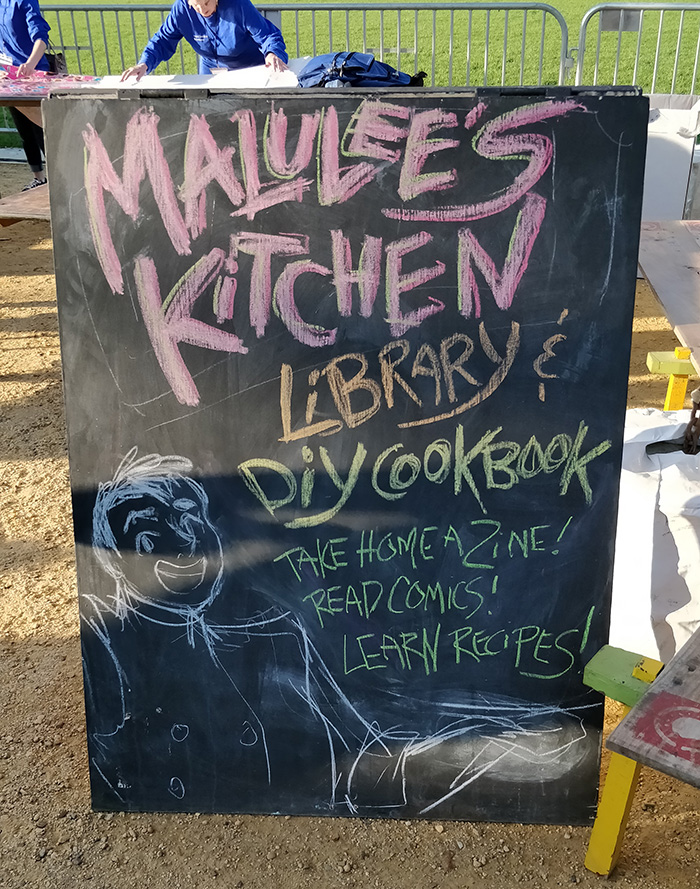 MALULEE'S
KITCHEN
LIBRARY &
DIY COOKBOOK
TAKE HOME A ZINE!
READ COMICS!
LEARN RECIPES!